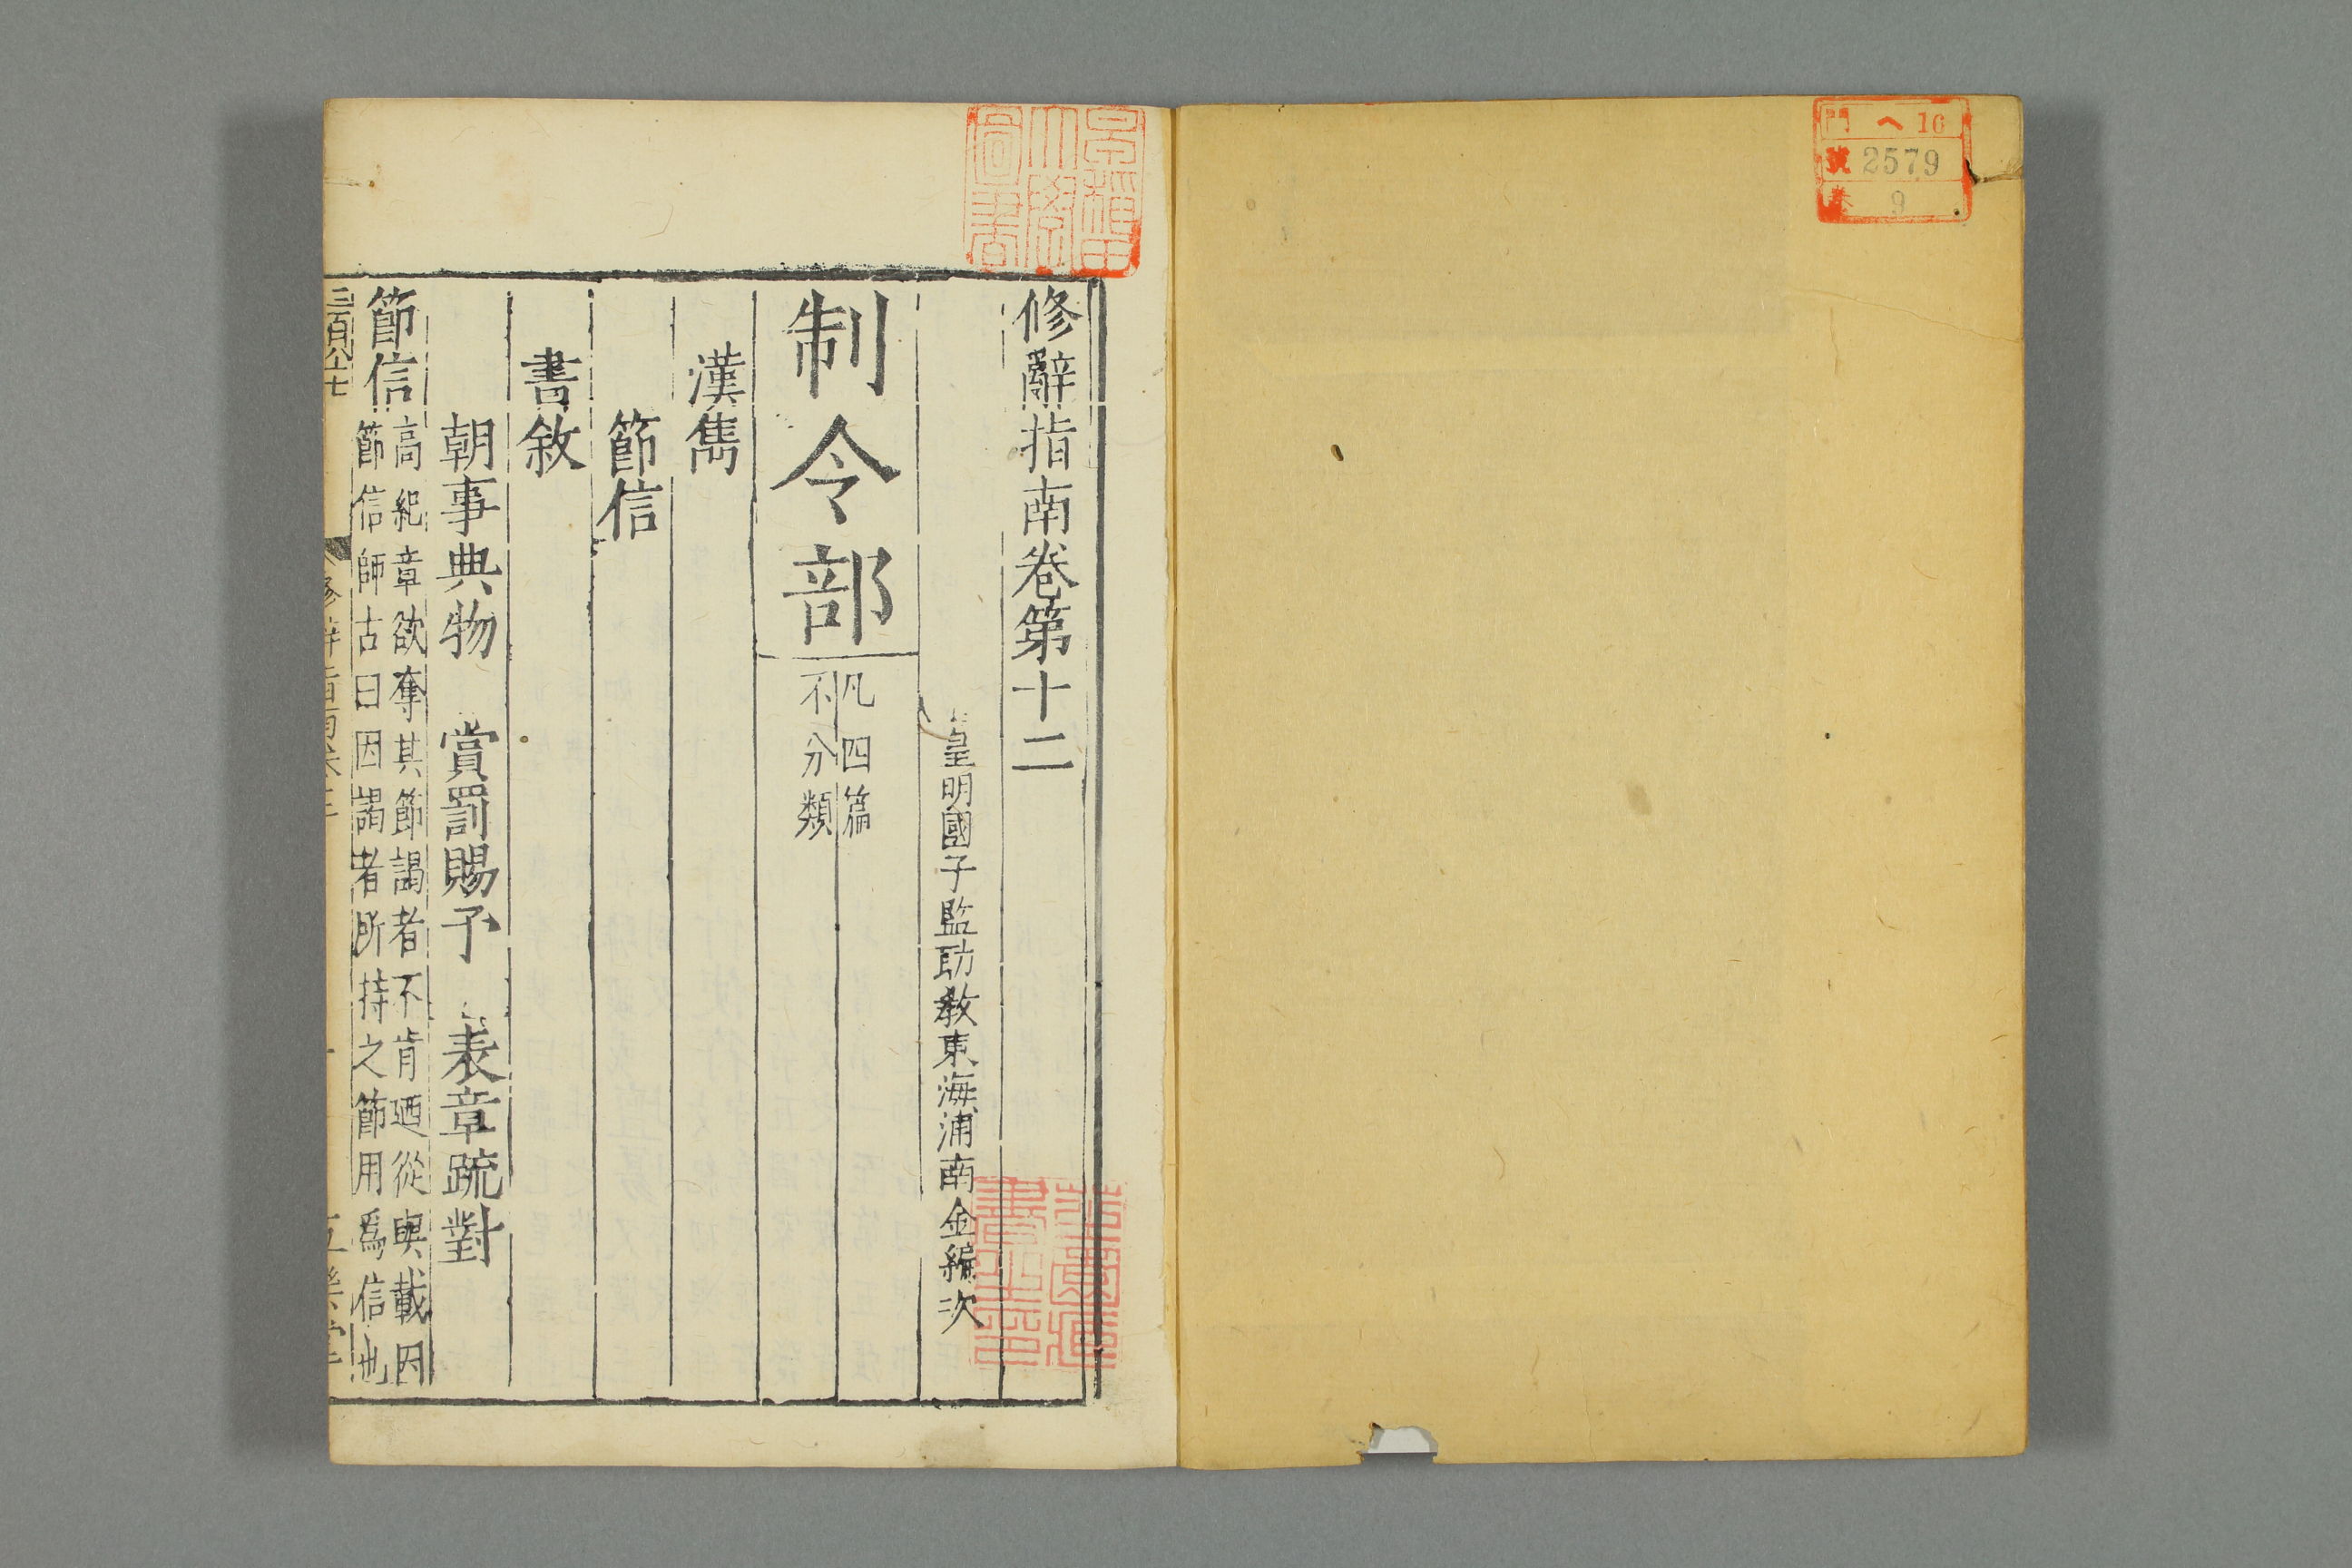 門 ヘ 16
號 2579
卷 9
早稲田
大學
圖書
修辭指南卷第十二
皇明國子監助敎東海浦南金編次
制令部
凡四篇
不分類
漢雋
節信
書敘
朝事典物 賞罰賜予 表章疏對
節信
高紀章欲奪其節謁者不肯廼從輿載因
節信師古曰因謁者所持之節用爲信也